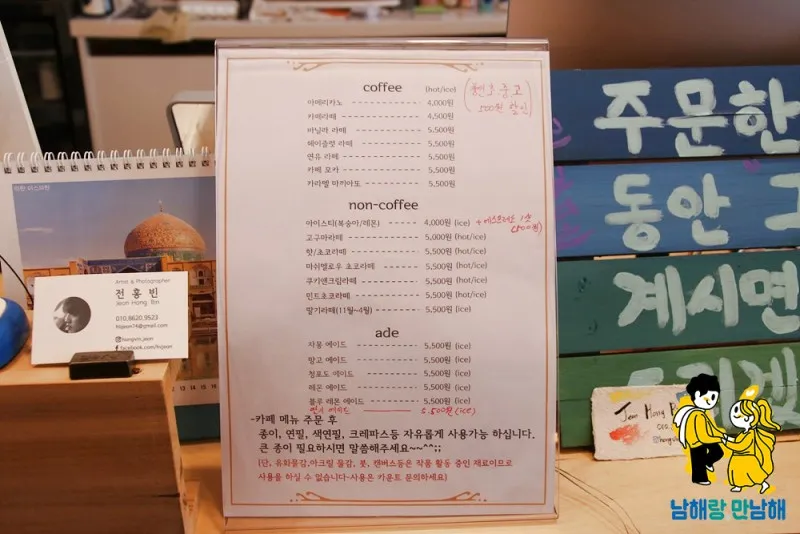 coffee (hot/ice)
500원 할인
아메리카노 4,000원
카페라떼 4,500원
바닐라 라떼 5,500원
헤이즐넛 라떼 5,500원
연유 라떼 5,500원
카페 모카 5,500원
카라멜 마키아또 5,500원
non-coffee
아이스티(복숭아/레몬) 4,000원 (ice)
고구마라떼 5,000원 (hot/ice)
핫/초코라떼 5,500원 (hot/ice)
마쉬멜로우 초코라떼 5,500원 (hot/ice)
쿠키앤크림라떼 5,500원 (hot/ice)
민트초코라떼 5,500원 (hot/ice)
딸기라떼(11월~4월) 5,500원 (hot/ice)
ade
자몽 에이드 5,500원 (ice)
망고 에이드 5,500원 (ice)
청포도 에이드 5,500원 (ice)
레몬 에이드 5,500원 (ice)
블루 레몬 에이드 5,500원 (ice)
에이드 5,500원 (ice)
-카페 메뉴 주문 후
종이, 연필, 색연필, 크레파스등 자유롭게 사용가능 하십니다.
큰 종이 필요하시면 말씀해주세요~~^^;;
(단, 유화물감,아크릴 물감, 붓, 캔버스등은 작품 활동 중인 재료이므로
사용을 하실 수 없습니다~사용은 카운트 문의하세요)
Artist & Photographer
전 홍 빈
Jeon Hong Bin
010.8620.9523
hijeon14@gmail.com
hongbin_jeon
facebook.com/hijeon
주문한
동안 그
계시면
Jeon Hong
남해랑 만남해